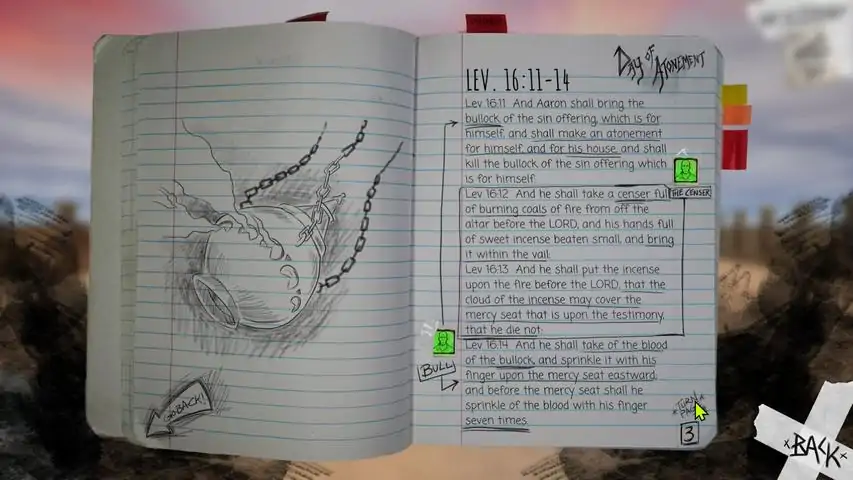 DAY OF ATONEMENT
LEV. 16:11-14
Lev 16:11 And Aaron shall bring the
bullock of the sin offering, which is for
himself, and shall make an atonement
for himself, and for his house, and shall
kill the bullock of the sin offering which
is for himself:
Lev 16:12 And he shall take a censer full
THE CENSER
of burning coals of fire from off the
altar before the LORD, and his hands full
of sweet incense beaten small, and bring
it within the vail:
Lev 16:13 And he shall put the incense
upon the fire before the LORD, that the
cloud of the incense may cover the
mercy seat that is upon the testimony,
that he die not:
Lev 16:14 And he shall take of the blood
of the bullock, and sprinkle it with his
BULL
finger upon the mercy seat eastward;
and before the mercy seat shall he
sprinkle of the blood with his finger
seven times.
GO BACK!
TURN
3
BACK